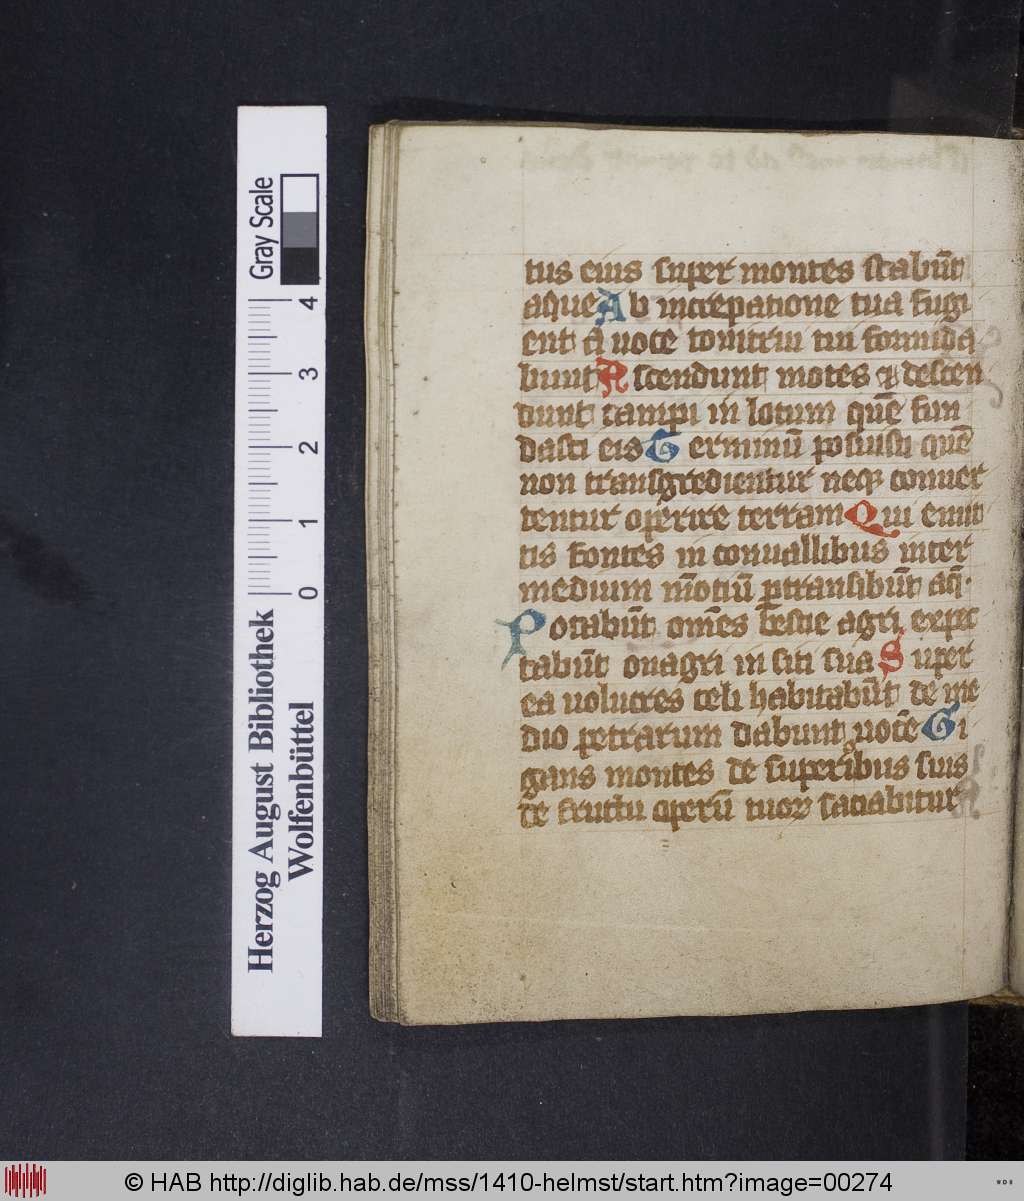 tus eius super montes stabūt
aque Ab increpatione tua fugi
ent a uoce tonitrui tui formida
bunt Ascendunt mōtes ⁊ descen
dunt campi in locum quē fun
dasti eis Terminū posuisti quē
non transgredientur neqꝫ conuer
tentur operire terram Qui emit
tis fontes in conuallibus inter
medium mōtiū ꝑtransibūt aq̄.
Potabūt om̄es bestie agri expec
tabūt onagri in siti sua Super
ea uolucres celi habitabūt de me
dio petrarum dabunt uocē Ri
gans montes de superioribus suis
de fructu operū tuoꝝ saciabitur
Gray Scale
4
3
2
1
0
Herzog August Bibliothek
Wolfenbüttel
© HAB http://diglib.hab.de/mss/1410-helmst/start.htm?image=00274